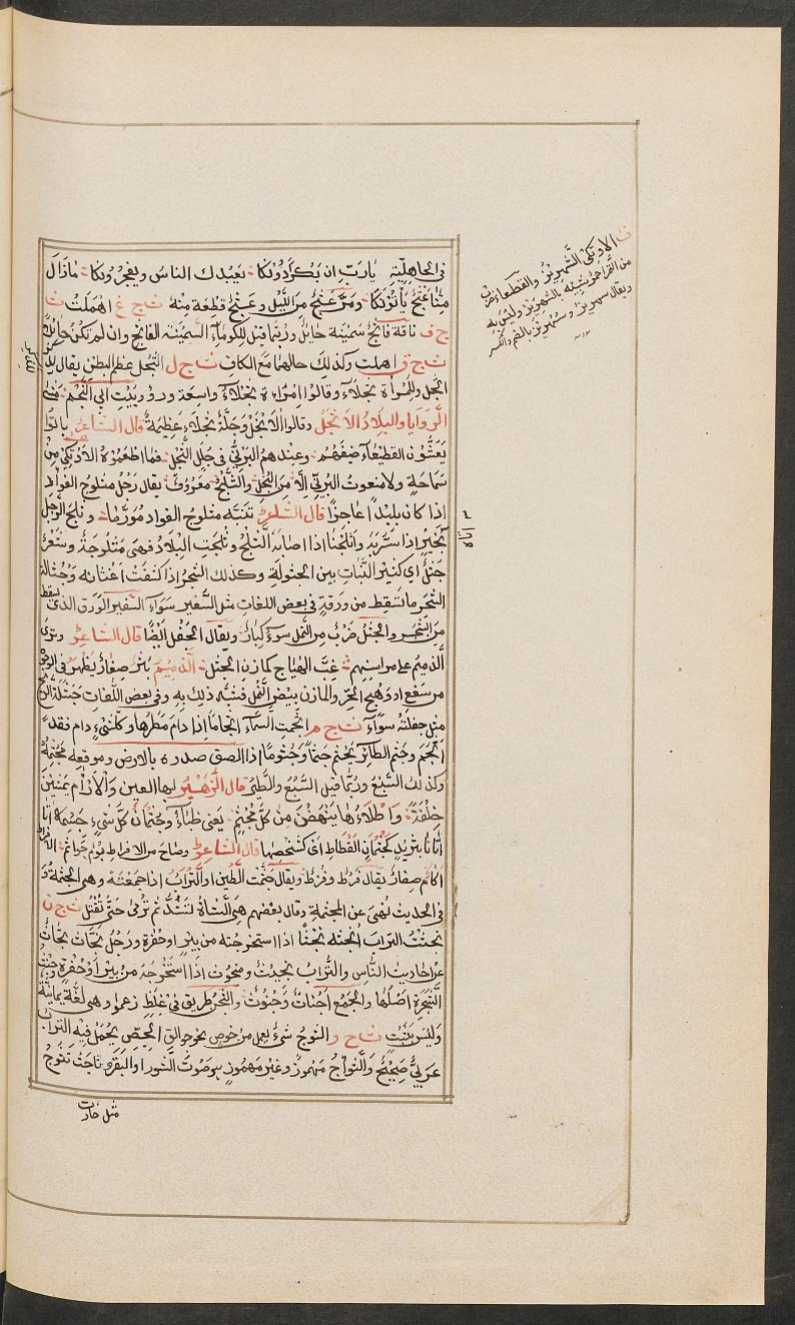 في الجاهلية يا رب ان بكرا دونكا يعبدك الناس ويفجرونكا ما زال
منا عثج يأتونكا ومر عثج من الليل وعثج قطعة منه ث ج غ اهملت ث
ج ف ناقة فاثج سمينة حائل وربما قيل للكوماء السمينة الفاثج وان لم تكن حائلا
ث ج ق اهملت وكذلك حالهما مع الكاف ث ج ل الثجل عظم البطن يقال رجل
اثجل والمرأة ثجلاء وقالوا امرأة ثجلاء واسعة وروو بيت ابي النجم
الروايا والبلاد الاثجل وقالوا الاثجل وجلة ثجلاء عظيمة قال الشاعر باتوا
يعشون القطيعاء ضيفهم وعندهم البرني في جلل الثجل فما اطعموه الاوتكى من
سماحة ولا منعوا البرني الا من البخل والثلج معروف يقال رجل مثلوج الفواد
اذا كان بليدا عاجزا قال الشاعر تنبه مثلوج الفواد مورما وثلج الرجل
بخبر اذا سر به واثلجنا اذا اصابنا الثلج وثلجت البلاد فهي مثلوجة وشعر
جثل اي كثير النبات بين الجثولة وكذلك الشجر اذا كثفت اغصانه وجثالة
الشجر ما تسقط من ورقه في بعض اللغات مثل السفير سواء السفير الورق الذي يسقط
من الشجر والجثل ضرب من النمل سود كبار ويقال الجفل ايضا قال الشاعر وترى
الذميم على مراسنهم غب الهياج كمازن الجثل الذميم بثر صغار يظهر في الوجه
من سفع او وهج الحر والمازن بيض النمل فشبه ذلك به وفي بعض اللغات جثلته الريح
مثل جفلته سواء ث ج م اثجمت السماء اثجاما اذا دام مطرها وكل شيء دام فقد
اثجم وجثم الطائر يجثم جثما وجثوما اذا الصق صدره بالارض وموقعه مجثمه
وكذلك السبع وربما قيل السبع والطير قال الزهير بها العين والآرام يمشين
خلفة واطلاؤها ينهضن من كل مجثم يعني ظباء وجثمان كل شيء جسمه اتا
اتانا بثريد كجثمان القطاط اي كشخصها قال الشاعر وصاح من الافراط بوم جواثم الافراط
آكام صغار يقال فرط وفرط ويقال جثمت الطين او التراب اذا جمعته وهي الجثمة و
في الحديث نهي عن المجثمة وقال بعضهم هي الشاة تشد ثم ترمى حتى تقتل ث ج ن
نجثت التراب انجثه نجثا اذا استخرجته من بئر او حفرة ورجل نجاث بحاث
عن احاديث الناس والتراب نجيث ومنجوث اذا استخرجته من بئر او حفرة وجنث
الشجرة اصلها والجمع اجناث وجنوث والثجن طريق في غلظ زعموا وهي لغة يمانية
وليس بثبت ث ج و والثوج شيء يعمل من خوص نحو جوالق الجص يحمل فيه التراب
عربي صحيح والثواج مهموز وغير مهموز من صوت الثور والبقر ثاجت تثوج
مثل خارت
ف الاوتكى الشهريز والقطيعاء ضرب
من التمر احمر شبيه بالشهريز وليس به
ويقال سهريز وشهريز بالضم والكسر